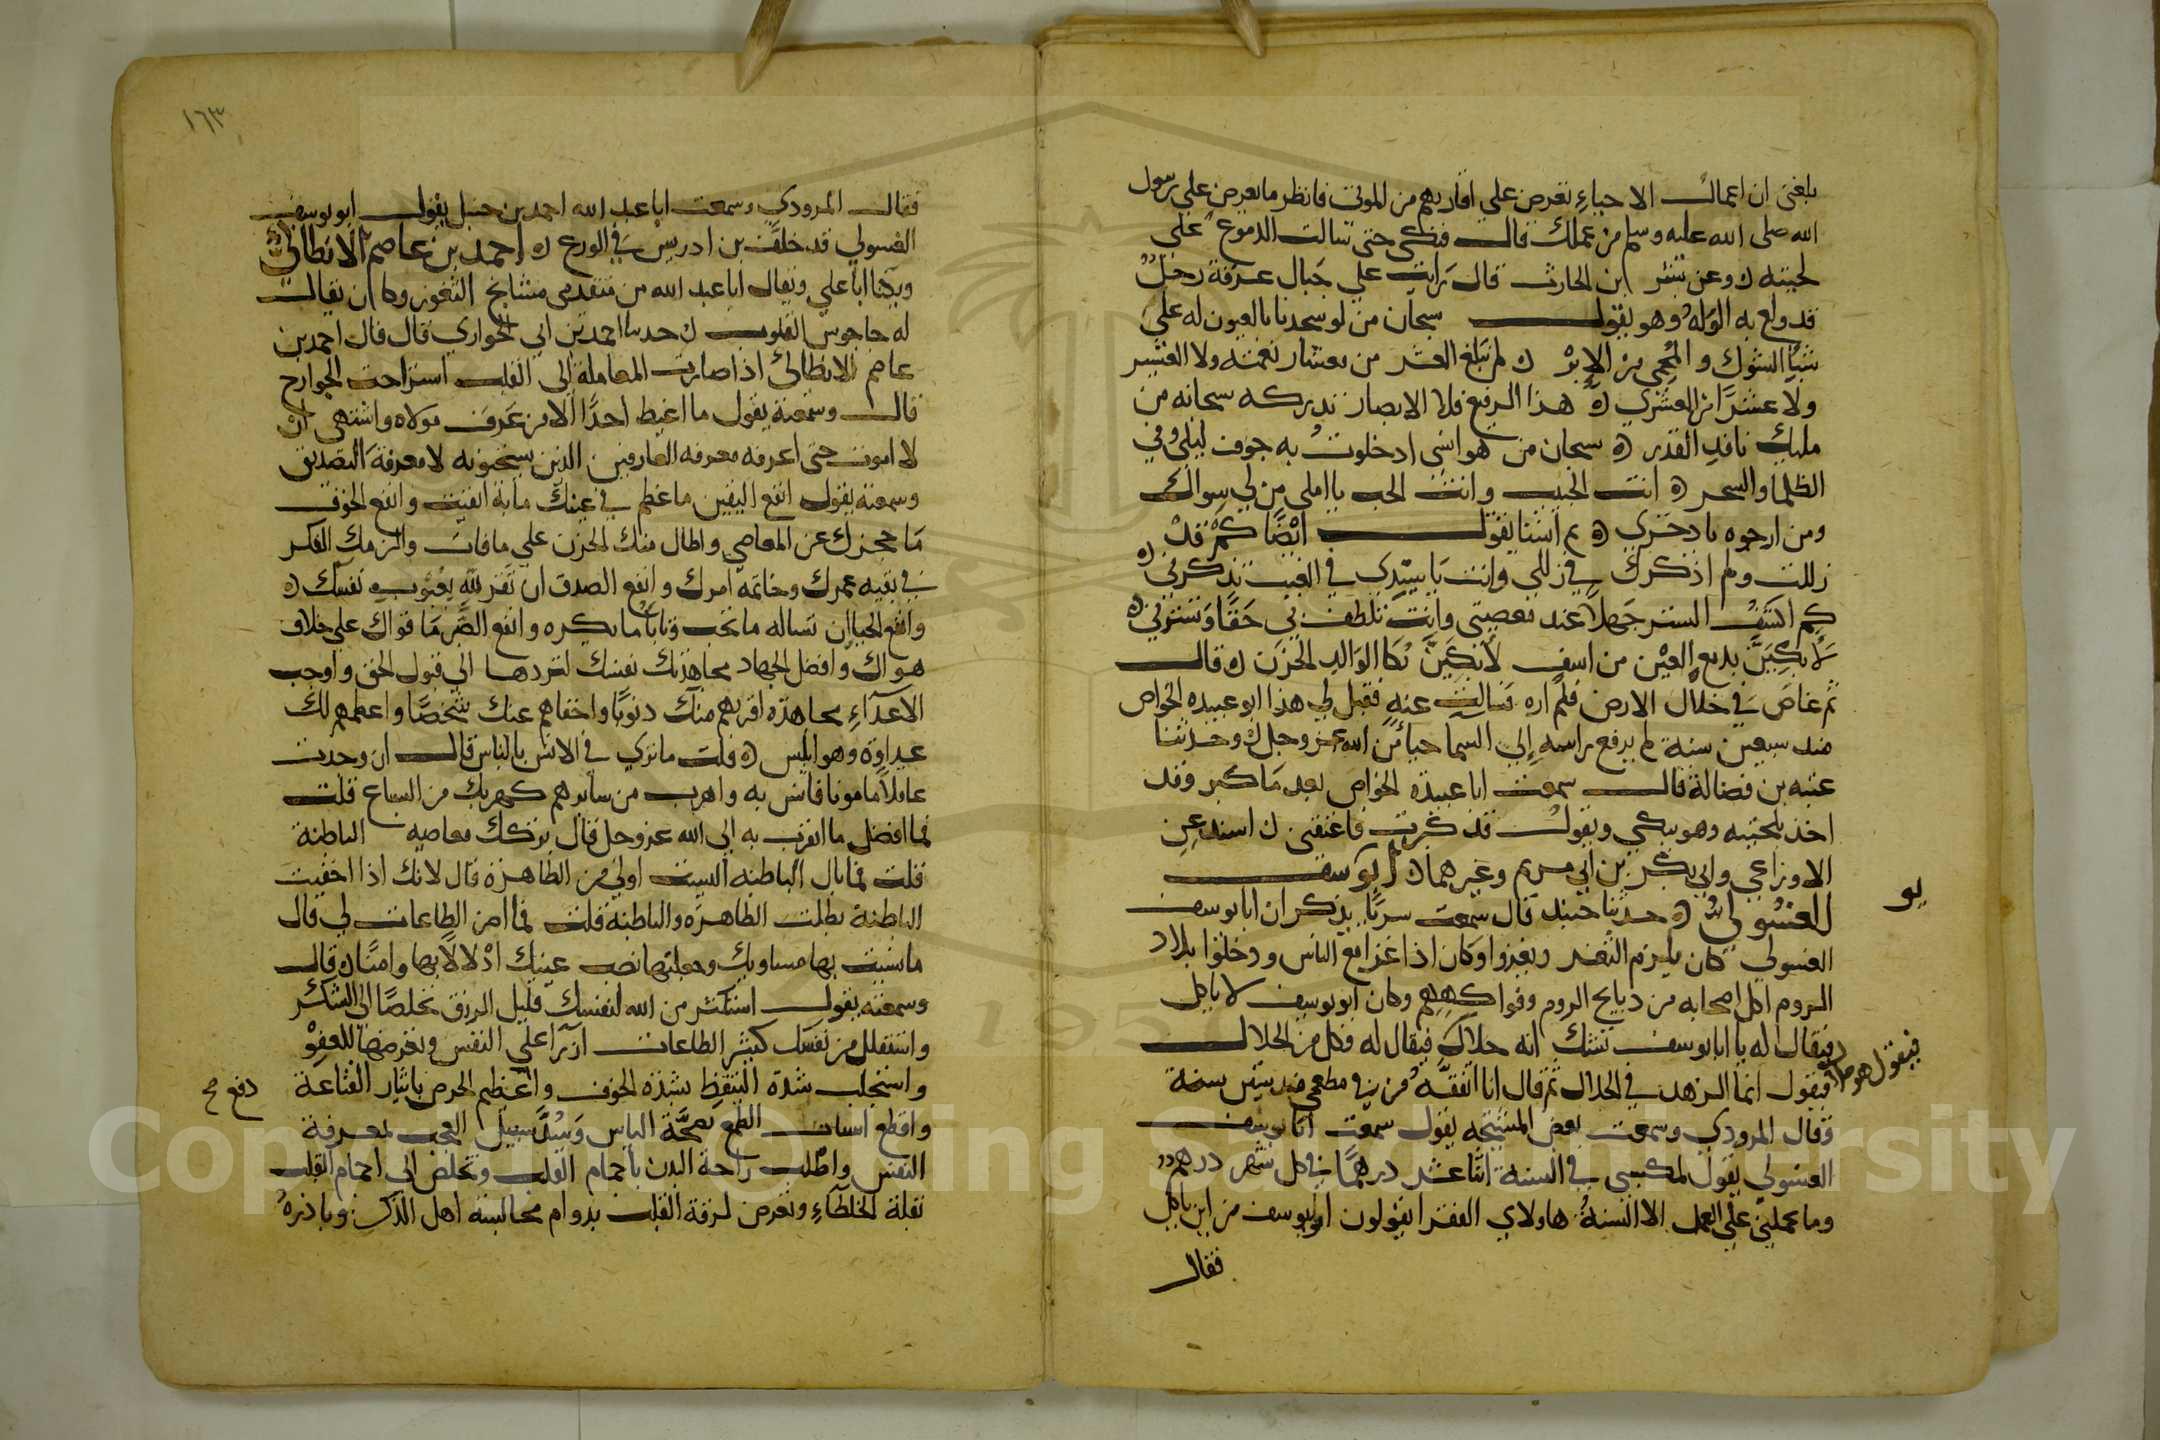 بلغني ان اعمال الاحياء تعرض علي اقاربهم من الموتى فانظر ما يعرض علي رسول
الله صلى الله عليه وسلم من عملك قال فبكى حتى سالت الدموع على
لحيته ه وعن بشر ابن الحارث قال رايت علي جبال عرفة رجل
قد ولع به الوله وهو يقول سبحان من لو سجدنا بالعيون له علي
شبا الشوك والمحمي من الابر ه لم نبلغ العشر من معشار نعمته ولا العشير
ولا عشرا من العشري ه هذا الرفيع فلا الابصار تدركه سبحانه من
مليك نافذ القدر ه سبحان من هو انسي اذ خلوت به جوف ليلي وفي
الظلما والسحر ه انت الحبيب وانت الحب يا املي من لي سواك
ومن ارجوه يا دخري ه ثم انشا يقول ايضا كم قد
زللت ولم اذكرك في زللي وانت يا سيدي في الغيب تذكرني ه
كم اكشف الستر جهلا عند معصيتي وانت تلطف بي حقا وتسترني ه
لابكين بدمع العين من اسف لابكين بكا الواله الحزن ه قال
ثم غاص في خلال الارض فلم اره فسالت عنه فقيل لي هذا ابو عبيده الخواص
منذ سبعين سنة لم يرفع راسه إلى السما حيا من الله عز وجل ه وحدثنا
عتبه بن فضالة قال سمعت ابا عبيدة الخواص بعد ما كبر وقد
اخذ بلحيته وهو يبكي ويقول قد كبرت فاعتقني ه اسند عن
الاوزاعي وابي بكر بن ابي مريم وغيرهما ه ابو يوسف
الغسولي ه حدثنا جنيد قال سمعت سريا يذكر ان ابا يوسف
الغسولي كان يلزم الثغر ويغزوا وكان اذا غزا مع الناس ودخلوا بلاد
الروم اكل اصحابه من ذبايح الروم وفواكههم وكان ابو يوسف لا ياكل
فيقال له يا ابا يوسف تشك انه حلال فيقول هو حلال فيقال له فكل من الحلال
فيقول انما الزهد في الحلال ثم قال انا اتفقه من في مطعمي منذ ستين سنة
وقال المروذي وسمعت بعض المشيخه يقول سمعت ابا يوسف
الغسولي يقول لمكسبي في السنة اثنا عشر درهما في كل شهر درهم
وما عملني علي العمل الا السنة هاولاي الفقرا يقولون ابو يوسف من اين ياكل
فقال
١٦٣
فقال المروذي وسمعت ابا عبد الله احمد بن حنبل يقول ابو يوسف
الغسولي قد خلف بن ادريس في الورع ه احمد بن عاصم الانطاكي
ويكنا ابا علي ويقال ابا عبد الله من متقدمي مشايخ الثغور وكان يقال
له جاجوس القلوب ه حدثنا احمد بن ابي الحواري قال قال احمد بن
عاصم الانطاكي اذا صارت المعاملة إلى القلب استراحت الجوارح
قال وسمعته يقول ما اغبط احدا الا من عرف مولاه واشتهي ان
لا اموت حتى اعرفه معرفه العارفين الذين يستحيونه لا معرفة التصديق
وسمعته يقول انفع اليقين ما عظم في عينك ما به ايقنت وانفع الخوف
ما حجزك عن المعاصي واطال منك الحزن علي ما فات والزمك الفكر
في بقيه عمرك وخاتمة امرك وانفع الصدق ان تقر لله بعيوب نفسك ه
وانفع الحيا ان تساله ما تحب وتاتي ما يكره وانفع الصبر ما قواك علي خلاف
هواك وافضل الجهاد مجاهدتك نفسك لتردها الي قبول الحق واوجب
الاعداء مجاهدة اقربهم منك دنوا واخفاهم عنك شخصا واعظمهم لك
عداوة وهو ابليس ه قلت ما تري في الانس بالناس قال ان وجدت
عاقلا مامونا فانس به واهرب من سايرهم كهربك من السباع قلت
فما افضل ما اتقرب به إلى الله عز وجل قال تركك معاصيه الباطنة
قلت فما بال الباطنه اليست اولي من الظاهرة قال لانك اذا اجتنبت
الباطنة بطلت الظاهرة والباطنة قلت فما اضر الطاعات لي قال
ما نسيت بها مساويك وجعلتها نصب عينيك ادلالا بها وامنا ه قال
وسمعته يقول استكثر من الله لنفسك قليل الرزق تخلصا الى الشكر
واستقلل من نفسك كثير الطاعات ازرا علي النفس وتعرضا للعفو
دفع صح
واستجلب شدة التيقظ بشدة الخوف والعظيم الحرص بايثار القناعة
واقطع اسباب الطمع بصحة الياس وسد سبيل العجب بمعرفة
النفس واطلب راحة البدن باجمام القلب وتخلص الى اجمام القلب
بقلة الخلطاء وتعرض لرقة القلب بدوام مجالسة اهل الذكر وبادره